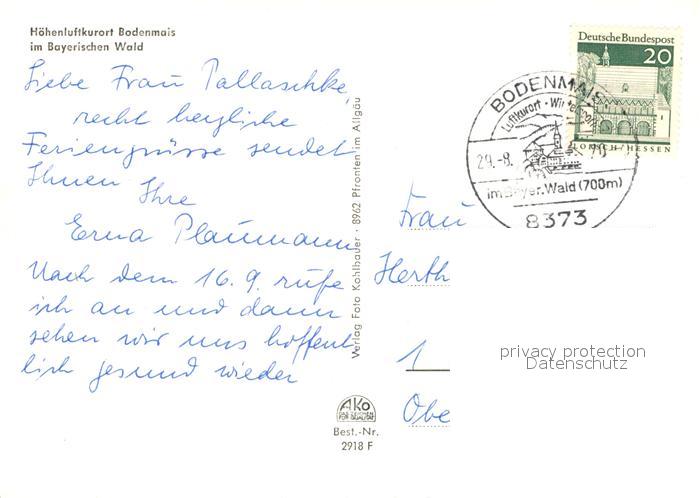 Höhenluftkurort Bodenmais
im Bayerischen Wald
Liebe Frau Pallaschke,
recht herzliche
Feriengrüsse sendet
Ihnen Ihre
Erna Plaumann
Nach dem 16.9. rufe
ich an und dann
sehen wir uns hoffent
lich gesund wieder
Verlag Foto Kohlbauer · 8962 Pfronten im Allgäu
AKo
Best.-Nr.
2918 F
Deutsche Bundespost
20
LORSCH/HESSEN
BODENMAIS
Luftkurort · Wintersport
29.-8. 70
im Bayer. Wald (700m)
8373
Frau
Herth
1
Obe
privacy protection
Datenschutz